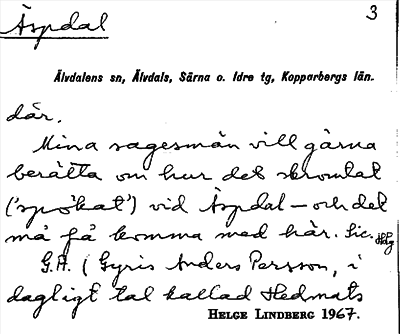 Åspdal
3
Älvdalens sn, Älvdals, Särna o. Idre tg, Kopparbergs län.
där.
Mina sagesmän vill gärna
berätta om hur det skromlat
('spökat') vid Åspdal – och det
må få komma med här. Sic.
G.A. (Gyris Anders Persson, i
dagligt tal kallad Hedmats
HELGE LINDBERG 1967.